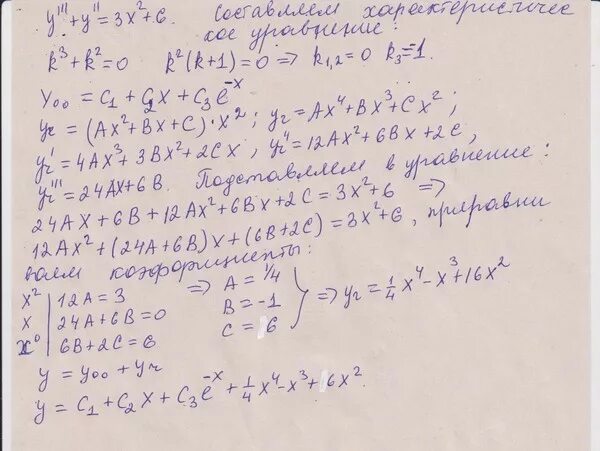 y''' + y'' = 3x² + 6. Составляем характеристичес
кое уравнение:
k³ + k² = 0 k²(k+1) = 0 ⇒ k₁,₂ = 0 k₃ = -1.
y₀₀ = C₁ + C₂x + C₃e⁻ˣ
yг = (Ax² + Bx + C)·x²; yг = Ax⁴ + Bx³ + Cx²;
yг' = 4Ax³ + 3Bx² + 2Cx, yг'' = 12Ax² + 6Bx + 2C,
yг''' = 24Ax + 6B. Подставляем в уравнение:
24Ax + 6B + 12Ax² + 6Bx + 2C = 3x² + 6 ⇒
12Ax² + (24A + 6B)x + (6B + 2C) = 3x² + 6, приравни
ваем коэффициенты:
x² | 12A = 3 ⇒ A = 1/4
x | 24A + 6B = 0 B = -1
x⁰ | 6B + 2C = 6 C = 6 } ⇒ yг = 1/4 x⁴ - x³ + 16x²
y = y₀₀ + yч
y = C₁ + C₂x + C₃e⁻ˣ + 1/4 x⁴ - x³ + 6x²